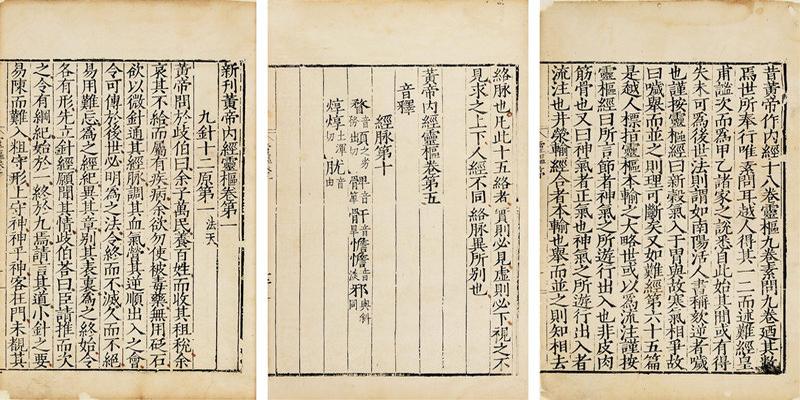 昔黃帝作內經十八卷靈樞九卷素問九卷迺其數
焉世所奉行唯素問耳越人得其一二而述難經皇
甫謐次而為甲乙諸家之說悉自此始其間或有得
失未可為後世法則謂如南陽活人書稱欬逆者噦
也謹按靈樞經曰新穀氣入于胃與故寒氣相爭故
曰噦舉而並之則理可斷矣又如難經第六十五篇
是越人標指靈樞本輸之大略世或以為流注謹按
靈樞經曰所言節者神氣之所遊行出入也非皮肉
筋骨也又曰神氣者正氣也神氣之所遊行出入者
流注也井滎輸經合者本輸也舉而並之則知相去
絡脈也凡此十五絡者實則必見虛則必下視之不
見求之上下人經不同絡脈異所別也
黃帝內經靈樞卷第五
音釋
經脈第十
骭音旱憺憺音淡邪與斜同
焞焞土渾切胧音由
新刊黃帝內經靈樞卷第一
九針十二原第一 法天
黃帝問於歧伯曰余子萬民養百姓而收其租稅余
哀其不給而屬有疾病余欲勿使被毒藥無用砭石
欲以微針通其經脈調其血氣營其逆順出入之會
令可傳於後世必明為之法令終而不滅久而不絕
易用難忘為之經紀異其章別其表裏為之終始令
各有形先立針經願聞其情歧伯答曰臣請推而次
之令有綱紀始於一終於九焉請言其道小針之要
易陳而難入粗守形上守神神乎神客在門未覩其